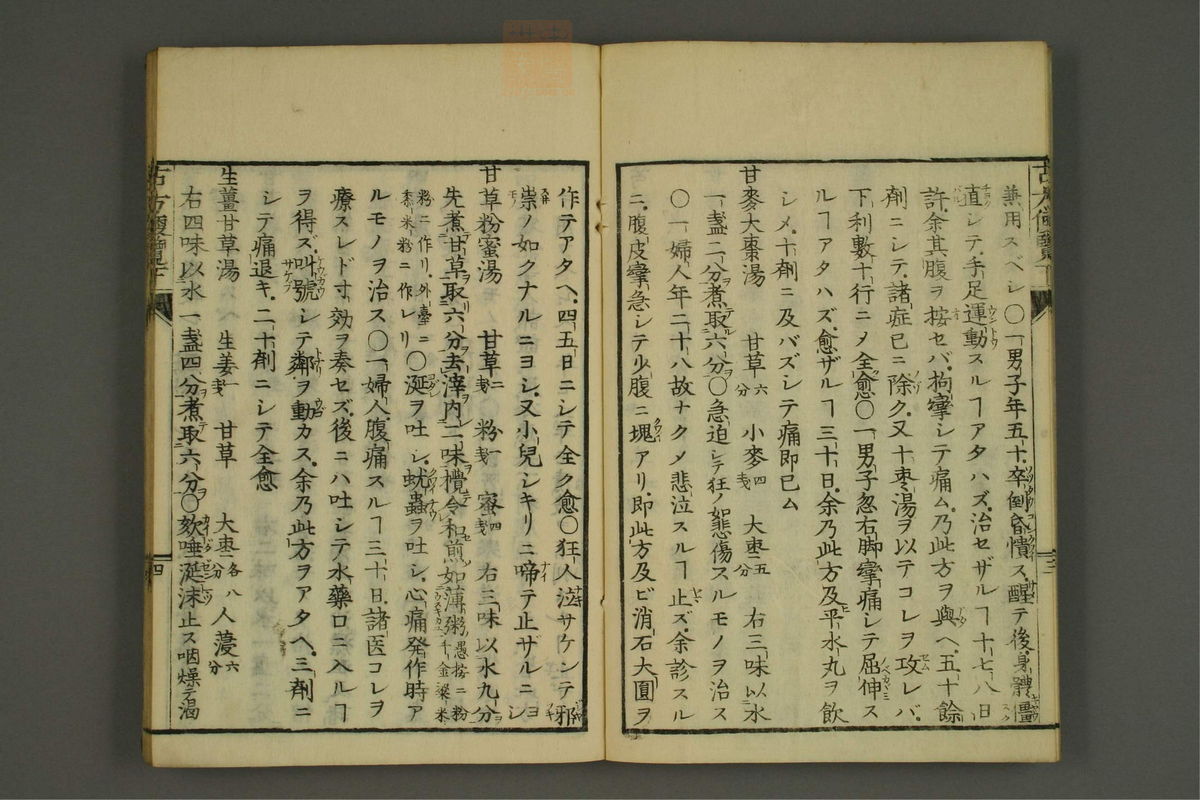 古方便覽下
兼用スベシ〇一男子年五十卒倒昏憒ス醒テ後身體僵
直シテ手足運動スルヿアタハズ治セザルヿ十七八日
許余其腹ヲ按セバ拘攣シテ痛ム乃此方ヲ與ヘ五十餘
劑ニシテ諸症已ニ除ク又十棗湯ヲ以テコレヲ攻レバ
下利數十行ニメ全愈〇一男子忽右脚攣痛シテ屈伸ス
ルヿアタハズ愈ザルヿ三十日余乃此方及平水丸ヲ飲
シメ十劑ニ及バズシテ痛即已ム
甘麥大棗湯 甘草六分 小麥四戔 大棗二分五 右三味以水
一盞二分煮取六分〇急迫シテ狂ノ如悲傷スルモノヲ治ス
〇一婦人年二十八故ナクメ悲泣スルヿ止ズ余診スル
ニ腹皮攣急シテ少腹ニ塊アリ即此方及ビ消石大圓ヲ
三
作テアタヘ四五日ニシテ全ク愈〇狂人泣サケンテ邪
崇ノ如クナルニヨシ又小兒シキリニ啼テ止ザルニヨシ
甘草粉蜜湯 甘草二戔 粉一戔 蜜四戔 右三味以水九分
先煮甘草取六分去滓内二味攪令和煎如薄粥愚按ニ粉千金粱米
粉ニ作リ外臺ニ黍米粉ニ作レリ〇涎ヲ吐シ蚘蟲ヲ吐シ心痛発作時ア
ルモノヲ治ス〇一婦人腹痛スルヿ三十日諸医コレヲ
療スレド寸効ヲ奏セズ後ニハ吐シテ水藥口ニ入ルヿ
ヲ得ズ叫號シテ鄰ヲ動カス余乃此方ヲアタヘ三劑ニ
シテ痛退キ二十劑ニシテ全愈
生薑甘草湯 生姜一戔 甘草 大棗各八分 人薓六分
右四味以水一盞四分煮取六分〇欬唾涎沫止ス咽燥テ渴
古方便覽下
四